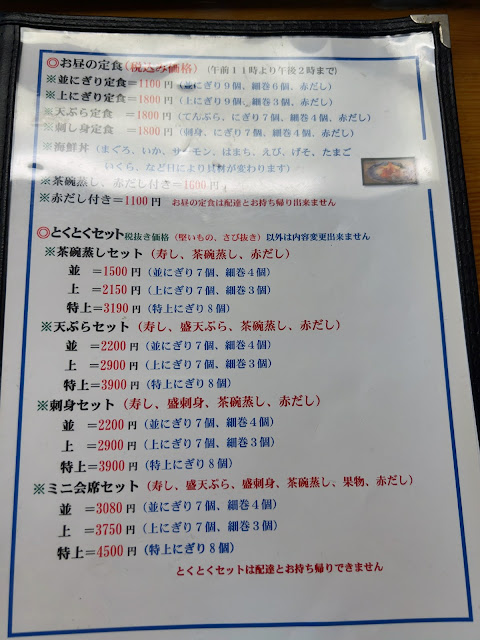 ◎お昼の定食(税込み価格)(午前11時より午後2時まで)
※並にぎり定食=1100円(並にぎり9個、細巻6個、赤だし)
※上にぎり定食=1800円(上にぎり9個、細巻3個、赤だし)
※天ぷら定食 =1800円(てんぷら、にぎり7個、細巻4個、赤だし)
※刺し身定食 =1800円(刺身、にぎり7個、細巻4個、赤だし)
※海鮮丼(まぐろ、いか、サーモン、はまち、えび、げそ、たまご
いくら、など日により具材が変わります)
※茶碗蒸し、赤だし付き=1600円
※赤だし付き=1100円 お昼の定食は配達とお持ち帰り出来ません
◎とくとくセット税抜き価格(堅いもの、さび抜き)以外は内容変更出来ません
※茶碗蒸しセット(寿し、茶碗蒸し、赤だし)
並 =1500円(並にぎり7個、細巻4個)
上 =2150円(上にぎり7個、細巻3個)
特上=3190円(特上にぎり8個)
※天ぷらセット(寿し、盛天ぷら、茶碗蒸し、赤だし)
並 =2200円(並にぎり7個、細巻4個)
上 =2900円(上にぎり7個、細巻3個)
特上=3900円(特上にぎり8個)
※刺身セット(寿し、盛刺身、茶碗蒸し、赤だし)
並 =2200円(並にぎり7個、細巻4個)
上 =2900円(上にぎり7個、細巻3個)
特上=3900円(特上にぎり8個)
※ミニ会席セット(寿し、盛天ぷら、盛刺身、茶碗蒸し、果物、赤だし)
並 =3080円(並にぎり7個、細巻4個)
上 =3750円(上にぎり7個、細巻3個)
特上=4500円(特上にぎり8個)
とくとくセットは配達とお持ち帰りできません